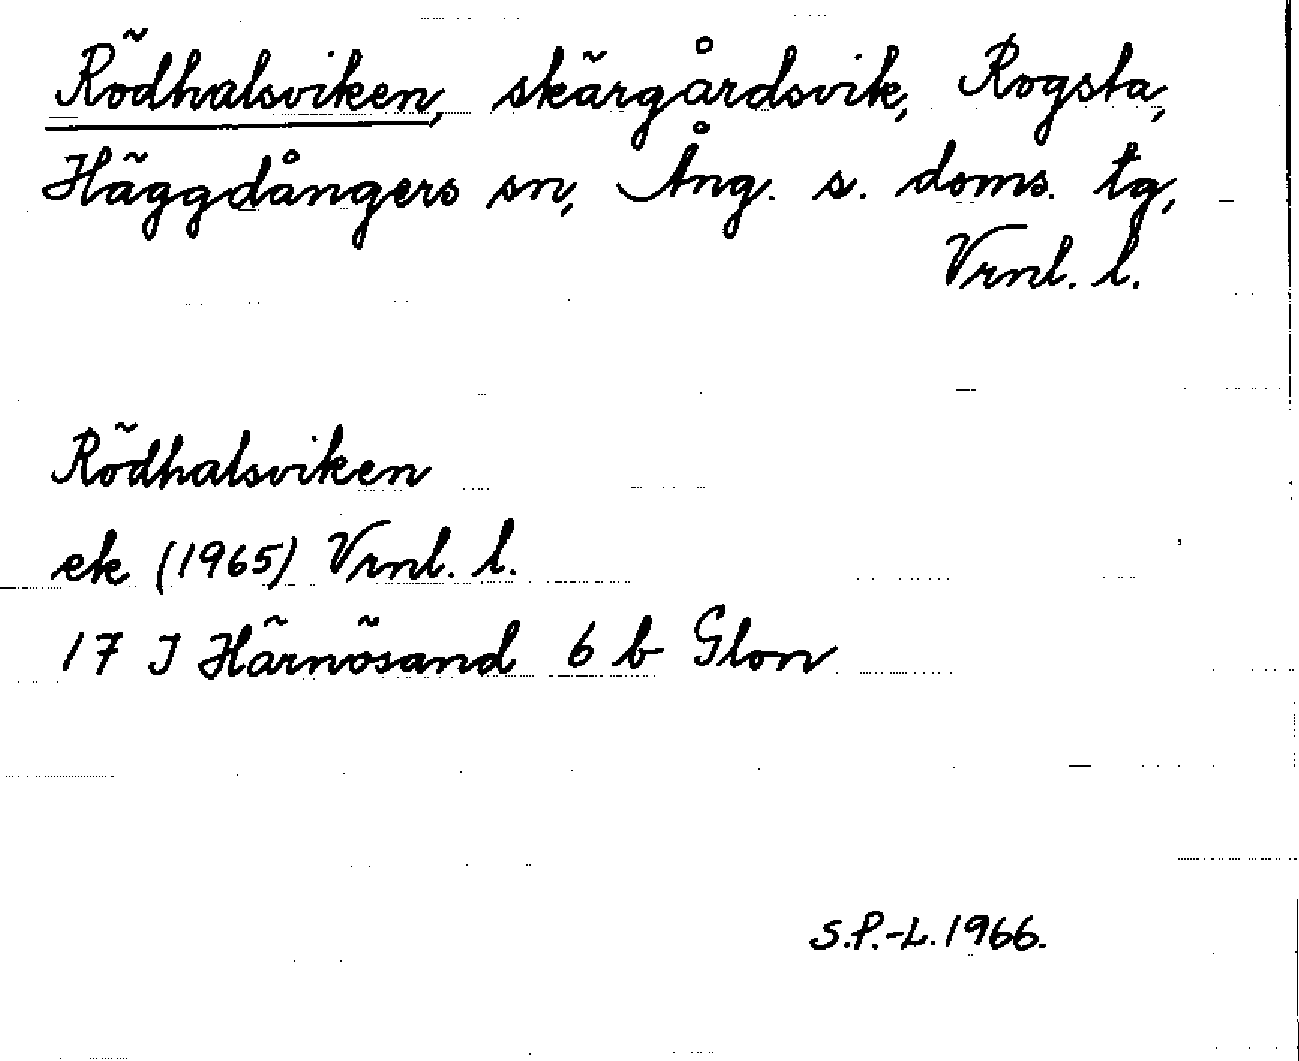 Rödhalsviken, skärgårdsvik, Rogsta,
Häggdångers sn, Ång. s. doms. tg,
Vrnl. l.
Rödhalsviken
ek (1965) Vrnl. l.
17 I Härnösand 6 b Glon
S.P.-L. 1966.